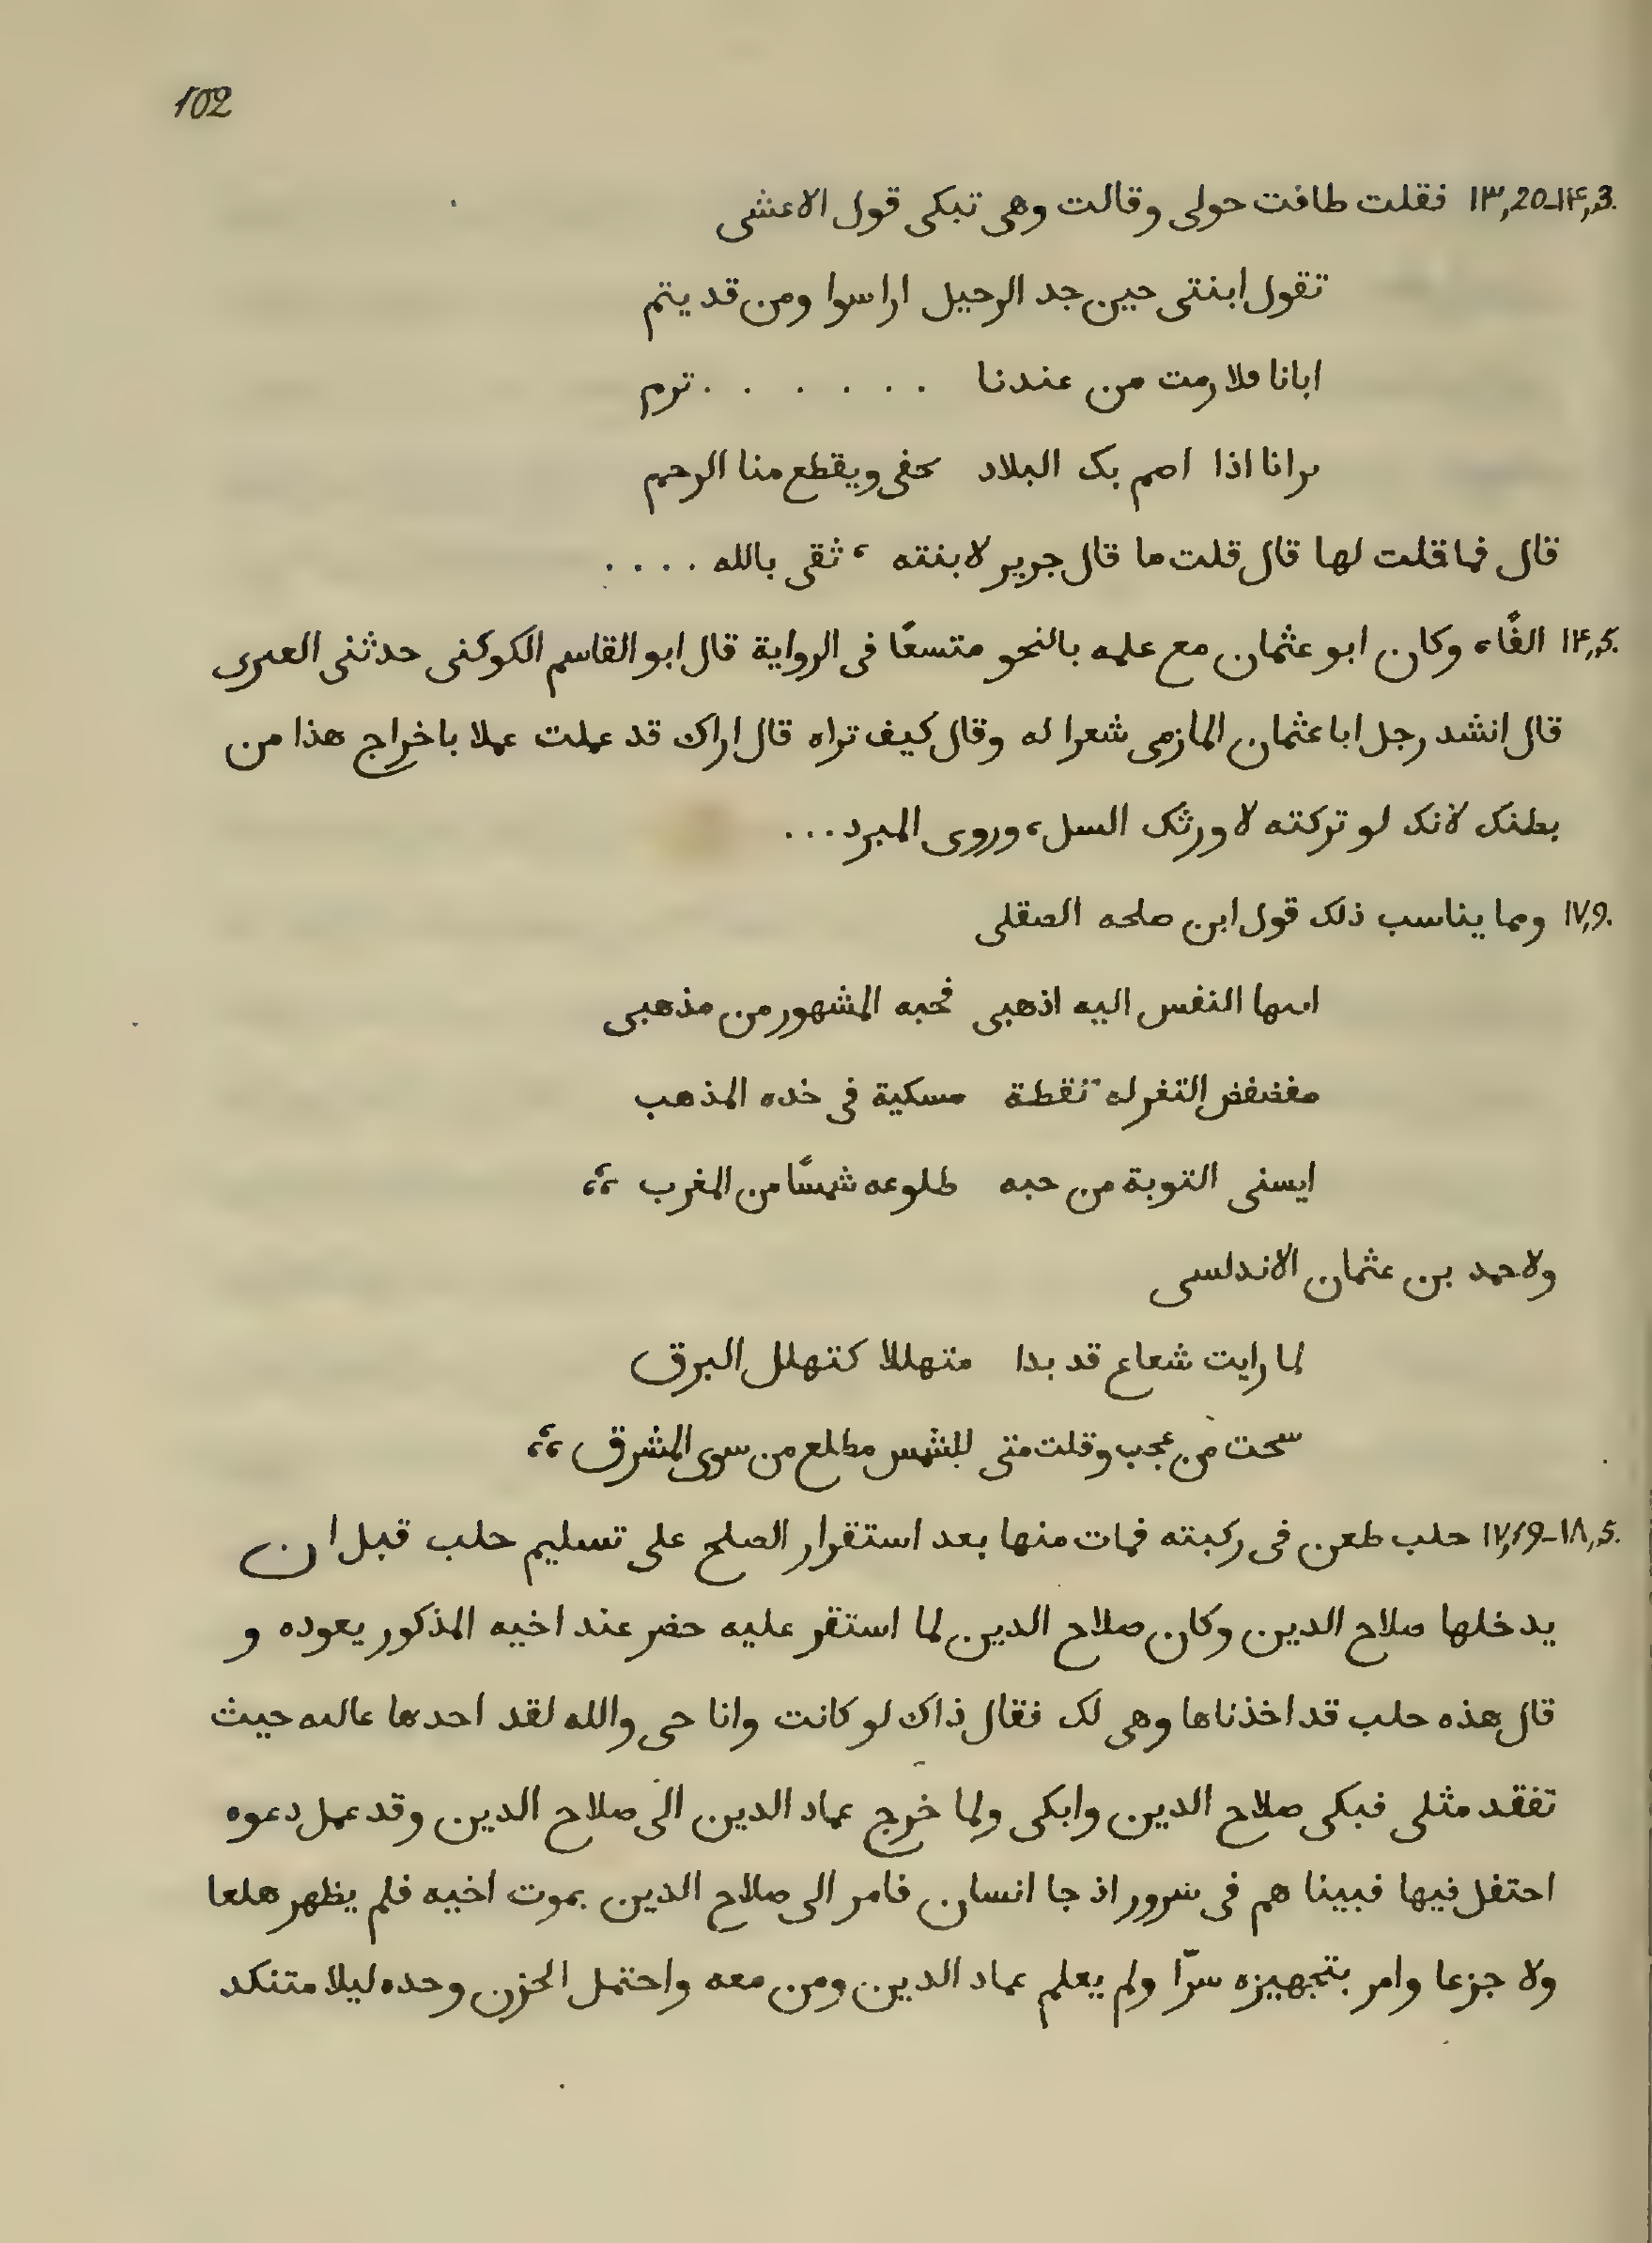 102
١٣,20-١۴,3. فقلت طافت حولى وقالت وهى تبكى قول الاعشى
تقول ابنتى حين جد الرحيل ارا سوا ومن قد يتم
ابانا فلا رمت من عندنا . . . . . . ترم
برانا اذا اصم بك البلاد بحفى ويقطع منا الرحم
قال فما قلت لها قال قلت ما قال جرير لابنته ، ثقى بالله . . . .
١۴,5. الفًاء وكان ابو عثمان مع علمه بالنحو متسعًا فى الرواية قال ابو القاسم الكوكنى حدثنى العبرى
قال انشد رجل ابا عثمان المازمى شعرا له وقال كيف تراه قال اراك قد عملت عملا باخراج هذا من
بطنك لانك لو تركته لاورثك السل، وروى المبرد...
١٧,9. ومما يناسب ذلك قول ابن صلحه الصقلى
ايها النفس اليه اذهبى فحبه المشهور من مذهبى
مفضفض الثغر له نقطة مسكية فى خده المذهب
ايسنى التوبة من حبه طلوعه شمسًا من المغرب ؛،
ولاحمد بن عثمان الاندلسى
لما رايت شعاع قد بدا متهللا كتهلل البرق
سحت من عجب وقلت متى للشمس مطلع من سوى المشرق ؛،
١٧,١9-١٨,5. حلب طعن فى ركبته فمات منها بعد استقرار الصلح على تسليم حلب قبل ان
يدخلها صلاح الدين وكان صلاح الدين لما استقر عليه حضر عند اخيه المذكور يعوده و
قال هذه حلب قد اخذناها وهى لك فقال ذاك لو كانت وانا حى والله لقد احدها عاليه حيث
تفقد مثلى فبكى صلاح الدين وابكى ولما خرج عماد الدين الى صلاح الدين وقد عمل دعوه
احتفل فيها فبينا هم فى سرور اذ جا انسان فامر الى صلاح الدين بموت اخيه فلم يظهر هلعا
ولا جزعا وامر بتجهيزه سرّا ولم يعلم عماد الدين ومن معه واحتمل الحزن وحده ليلا متنكد